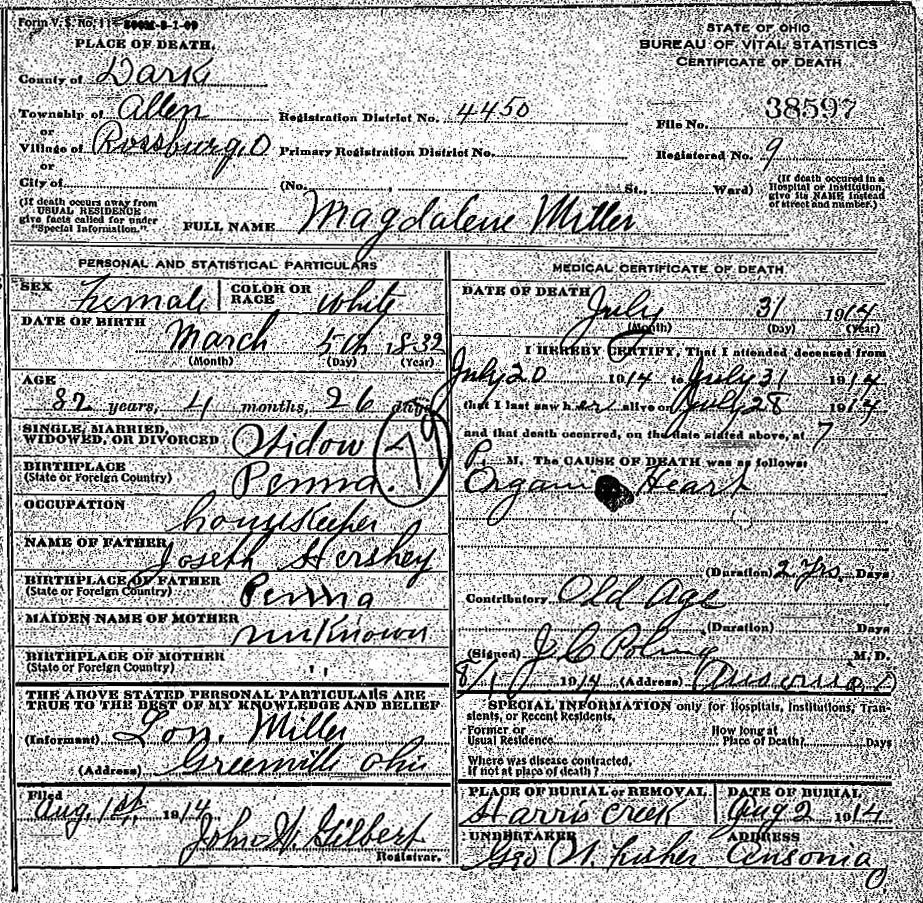 Form V. S. No. 11- 500M-8-1-09
PLACE OF DEATH.
STATE OF OHIO
BUREAU OF VITAL STATISTICS
CERTIFICATE OF DEATH
County of Dark
Township of Allen
Registration District No. 4450
File No. 38597
or
Village of Rossburg, O
Primary Registration District No.
Registered No. 9
or
City of (No. , St., Ward)
(If death occured in a Hospital or Institution, give its NAME instead of street and number.)
(If death occurs away from USUAL RESIDENCE give facts called for under "Special Information.")
FULL NAME Magdalene Miller
PERSONAL AND STATISTICAL PARTICULARS
SEX Female
COLOR OR RACE White
DATE OF BIRTH
March 5th 1832
(Month) (Day) (Year)
AGE
82 years, 4 months, 26 days
SINGLE, MARRIED, WIDOWED, OR DIVORCED Widow
79
BIRTHPLACE
(State or Foreign Country) Penna.
OCCUPATION
housekeeper
NAME OF FATHER Joseph Hershey
BIRTHPLACE OF FATHER
(State or Foreign Country) Penna
MAIDEN NAME OF MOTHER
unknown
BIRTHPLACE OF MOTHER
(State or Foreign Country) "
THE ABOVE STATED PERSONAL PARTICULARS ARE
TRUE TO THE BEST OF MY KNOWLEDGE AND BELIEF
(Informant) Lon. Miller
(Address) Greenville Ohio
Filed
Aug 1st, 1914
John W. Gilbert
Registrar.
MEDICAL CERTIFICATE OF DEATH
DATE OF DEATH
July 31 1914
(Month) (Day) (Year)
I HEREBY CERTIFY, That I attended deceased from
July 20 1914 to July 31 1914
that I last saw her alive on July 28 1914
and that death occurred, on the date stated above, at 7
P. M. The CAUSE OF DEATH was as follows:
Organic Heart
(Duration) 2 Yrs Days
Contributory Old Age
(Duration) Days
(Signed) J. C. Poling M. D.
8/1 1914 (Address) Ansonia, O
SPECIAL INFORMATION only for Hospitals, Institutions, Transients, or Recent Residents.
Former or Usual Residence
How long at Place of Death? Days
Where was disease contracted,
if not at place of death?
PLACE OF BURIAL or REMOVAL
Harris Creek
DATE OF BURIAL
Aug 2 1914
UNDERTAKER
Geo W. Fisher
ADDRESS
Ansonia, O